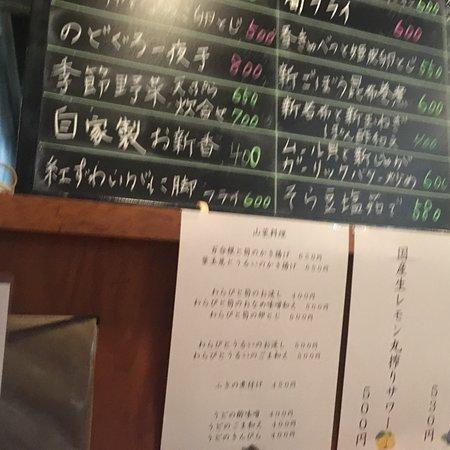 卵とじ 500
のどぐろ一夜干 800
季節野菜 天ぷら 650
炊合せ 700
自家製お新香 400
紅ずわいがに脚 フライ 600
フライ 600
新ごぼう昆布巻煮 600
新若布と新玉ねぎ
ぽん酢和え 400
ムール貝と新じゃが
ガーリックバター炒め 600
そら豆塩茹で 580
山菜料理
わらびと筍のお浸し 400円
わらびと筍の卵とじ
わらびとうるいのお浸し 450円
わらびとうるいのごま和え 500円
ふきの煮付け 450円
うどの酢味噌 400円
うどのごま和え 400円
うどのきんぴら 400円
国産生レモン丸搾りサワー
530円
500円